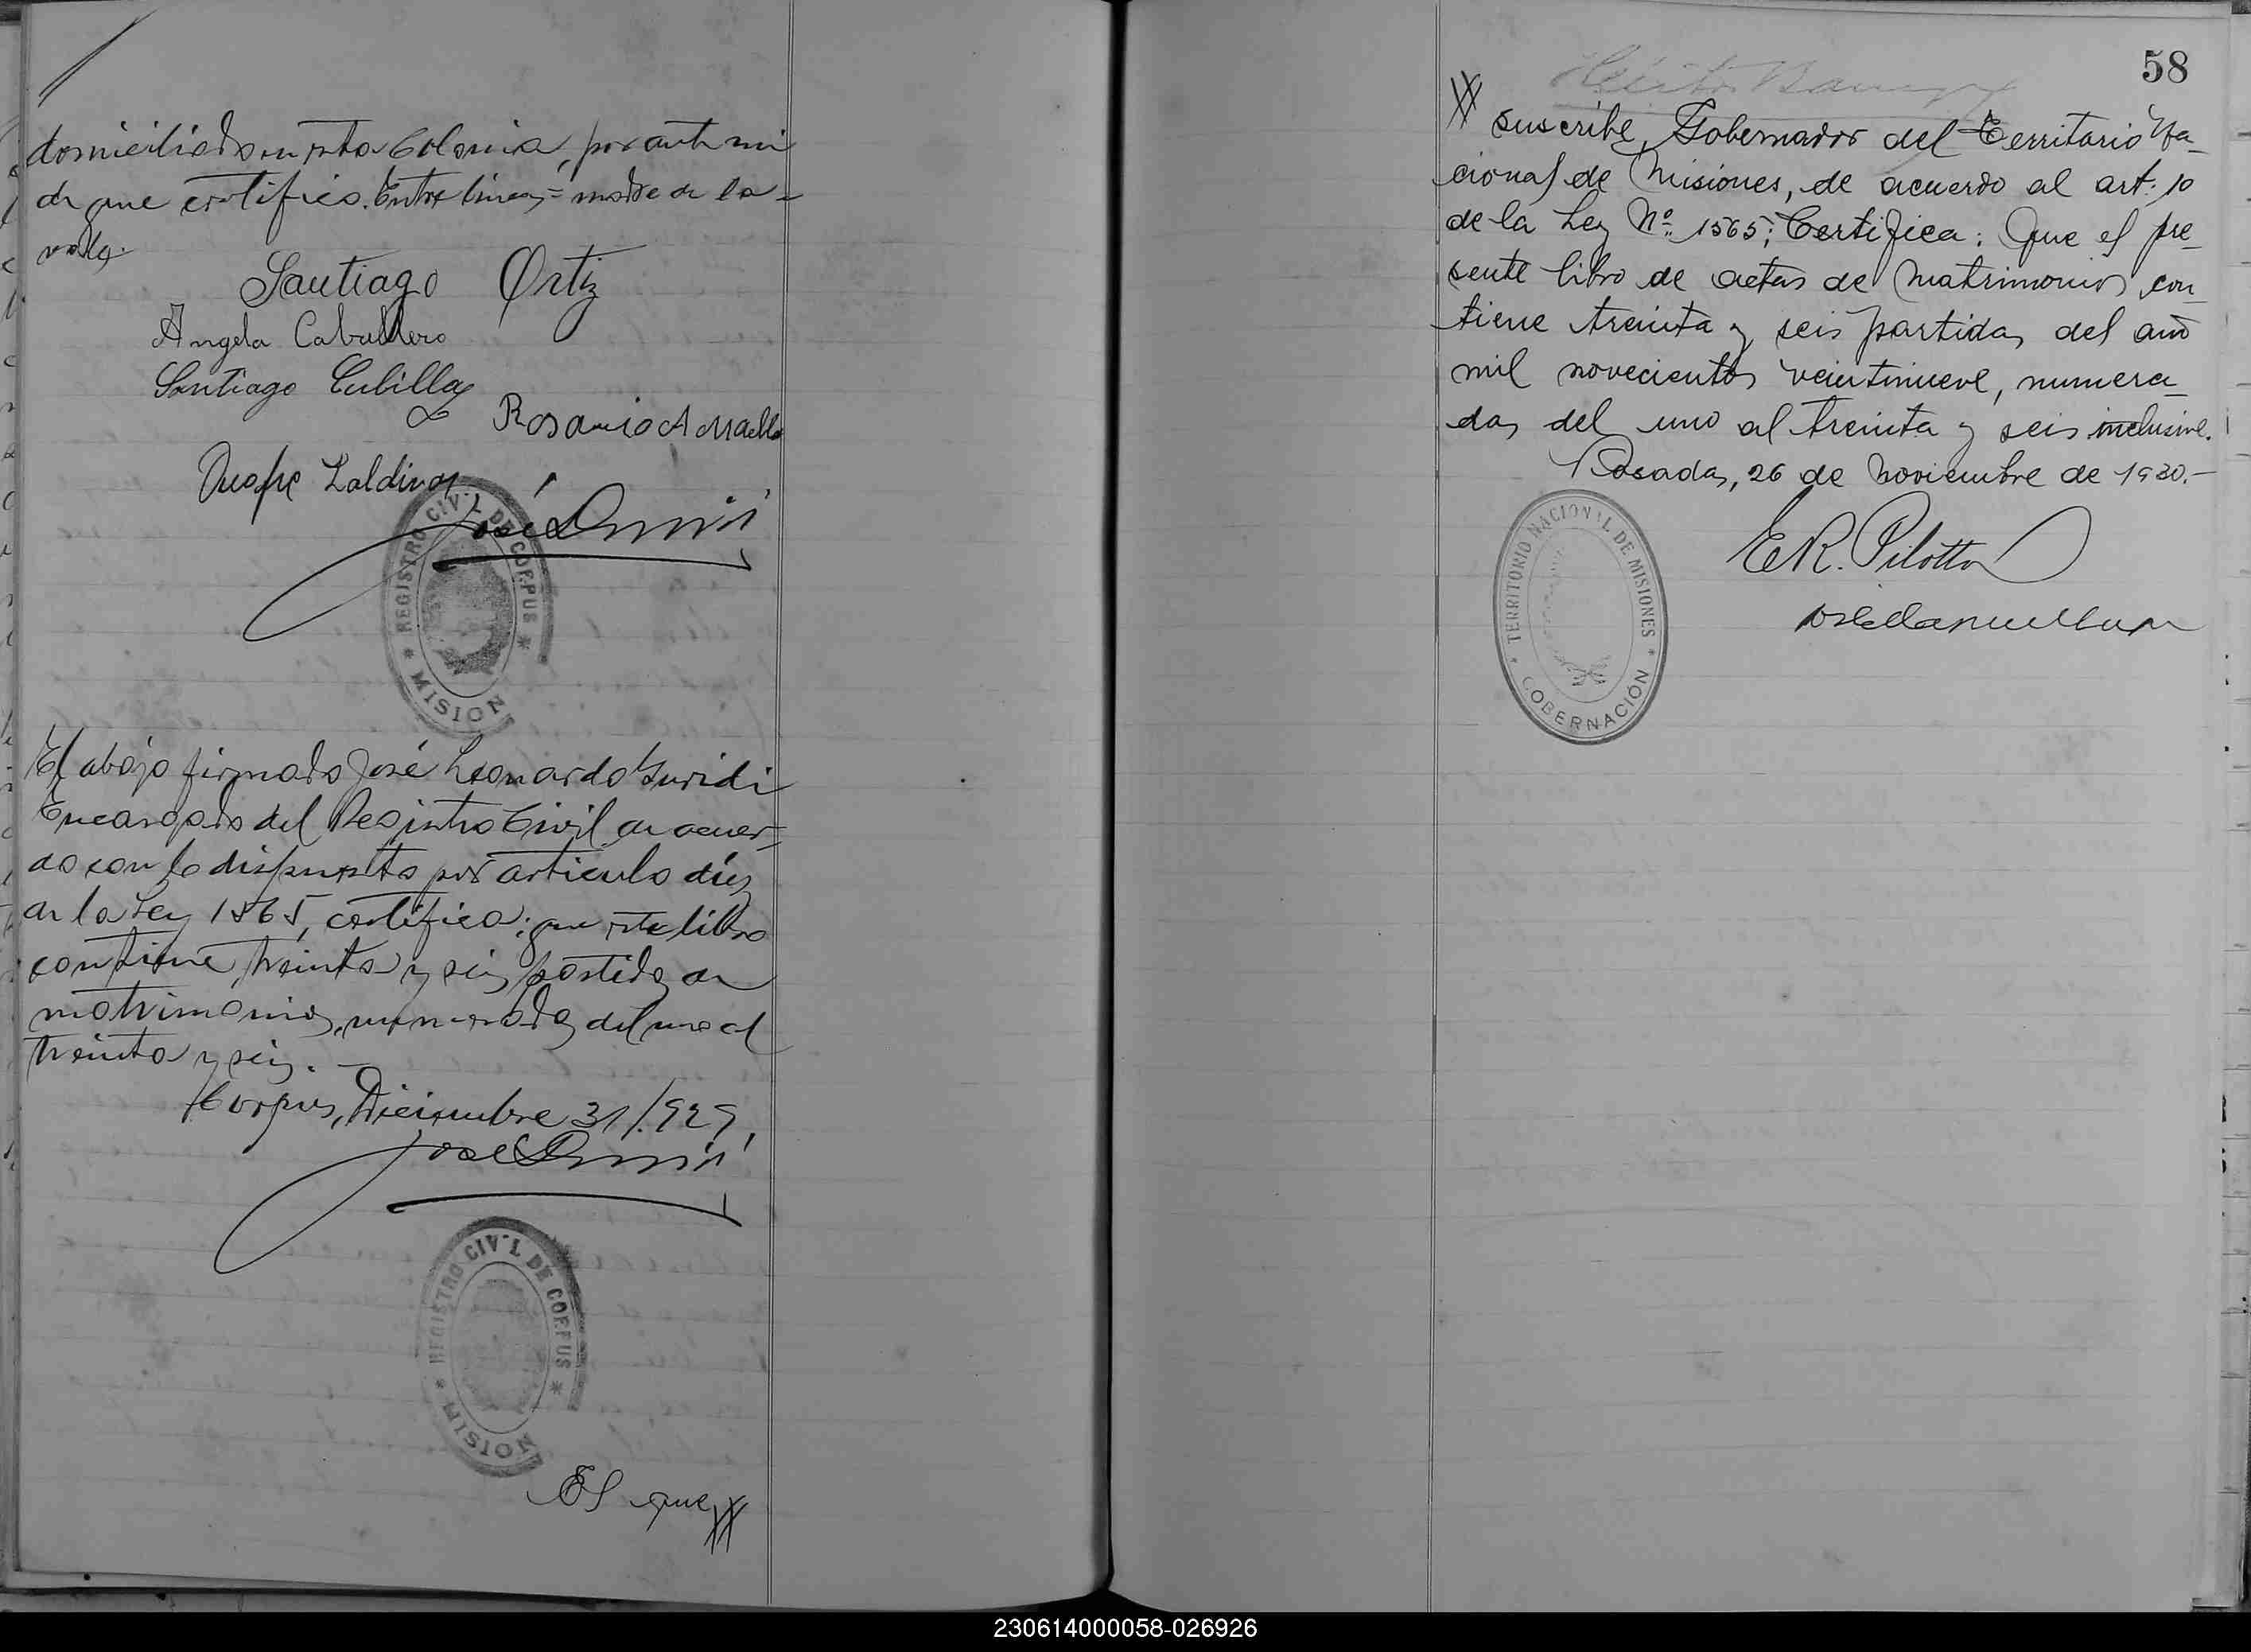 domiciliados en esta Colonia, por ante mi
de que certifico. Entre lineas = madre de la =
vale.
Santiago Ortiz
Angela Caballero
Santiago Cubillas
Rosario A
Zaldivar
José
REGISTRO CIVIL DE CORPUS
MISION
El abajo firmado José Leonardo Guridi
Encargado del Registro Civil de acuer=
do con lo dispuesto por articulo diez
de la Ley 1565, certifica: que este libro
contiene treinta y seis partidas de
matrimonios, numeradas del uno al
treinta y seis. —
Corpus, Diciembre 31/929,
José
REGISTRO CIVIL DE CORPUS
MISION
El que
58
suscribe, Gobernador del Territorio Na-
cional de Misiones, de acuerdo al art. 10
de la Ley Nº 1565; Certifica: Que el pre-
sente libro de actas de matrimonios con-
tiene treinta y seis partidas del año
mil novecientos veintinueve, numera-
das del uno al treinta y seis inclusive.
Posadas, 26 de Noviembre de 1930.-
E R. Pilotto
TERRITORIO NACIONAL DE MISIONES
GOBERNACIÓN
230614000058-026926